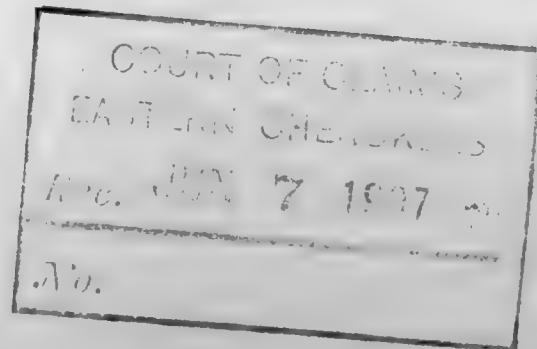 COURT OF CLAIMS
EASTERN CHEROKEES
No. JUN 7 1907
No.